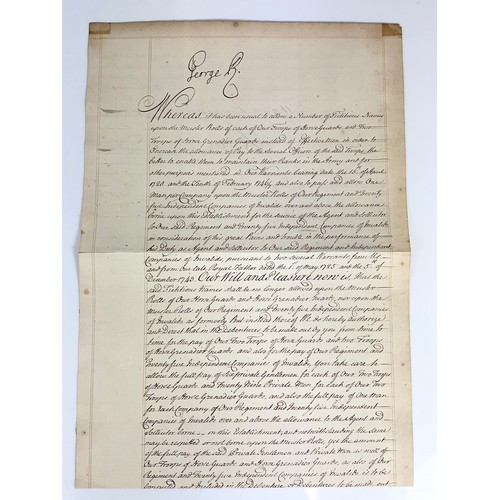 George R.
Whereas, it has been usual to allow a Number of Fictitious Names
upon the Muster Rolls of each of Our Troops of Horse Guards, and Two
Troops of Horse Grenadier Guards instead of Effective Men in order to
Encrease the allowance of Pay to the several Officers of the said Troops, the
better to enable them to maintain their Ranks in the Army and for
other purposes mentioned in Our Warrants bearing date the 15th of April
and the Tenth of February 1746/7, and also to pass and allow One
Man per Company upon the Muster Rolls of Our Regiment and Twenty
five Independent Companies of Invalids over and above the allowance
borne upon this Establishment for the service of the Agent and Sollicitor
to Our said Regiment and Twenty five Independent Companies of Invalids
in consideration of his great Pains and Trouble in the performance of
his Duty as Agent and Sollicitor to Our said Regiment and Independent
Companies of Invalids, pursuant to two several Warrants from Us
and from Our late Royal Father dated the 1st of May 1725 and the
December 1740. Our Will and Pleasure now is that the
said Fictitious Names shall be no longer allowed upon the Muster
Rolls of Our Horse Guards and Horse Grenadier Guards, nor upon the
Muster Rolls of Our Regiment and Twenty five Independent Companies
of Invalids as formerly but in lieu thereof We do hereby authorize
and Direct that in the debentures to be made out by you from time to
time for the pay of Our Two Troops of Horse Guards and two Troops
of Horse Grenadier Guards, and also for the pay of Our Regiment and
Twenty five Independent Companies of Invalids, You take care to
allow the full pay of Six private Gentlemen for each of Our Two Troops
of Horse Guards and Twenty Private Men for each of Our Two
Troops of Horse Grenadier Guards, and also the full pay of One man
for each Company of Our Regiment and Twenty five Independent
Companies of Invalids over and above the allowance to the Agent and
Sollicitor borne in this Establishment; and notwithstanding the same
may be respited or not borne upon the Muster Rolls, Yet the amount
of the full pay of the said Private Gentlemen and Private Men as well of
Our Troops of Horse Guards and Horse Grenadier Guards, as also of
Our Regiment and Independent Companies of Invalids is to be
comprised and Included in the debenture or debentures to be made out